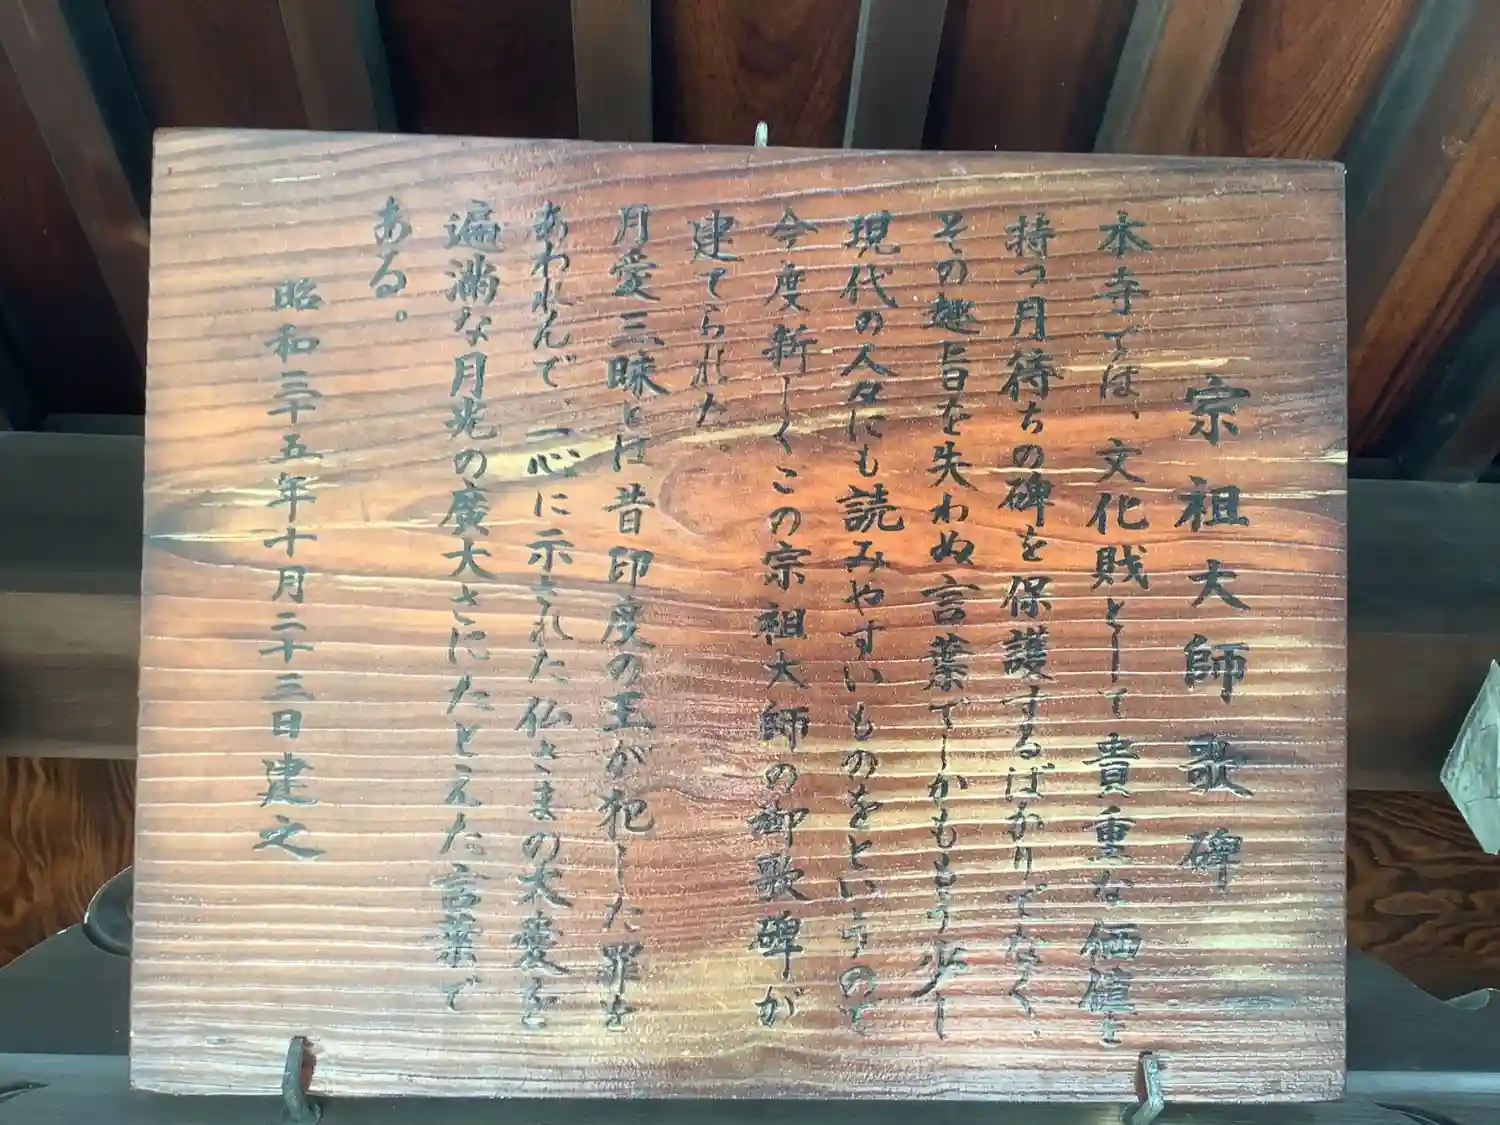 宗祖大師歌碑
本寺では、文化財として貴重な価値を
持つ月待ちの碑を保護するばかりでなく、
その趣旨を失わぬ言葉でしかももう少し
現代の人々にも読みやすいものをというので
今度新しくこの宗祖大師の御歌碑が
建てられた。
月愛三昧とは昔印度の王が犯した罪を
あわれんで、一心に示された仏さまの大愛を
遍満な月光の廣大さにたとえた言葉で
ある。
昭和三十五年十月二十三日建之